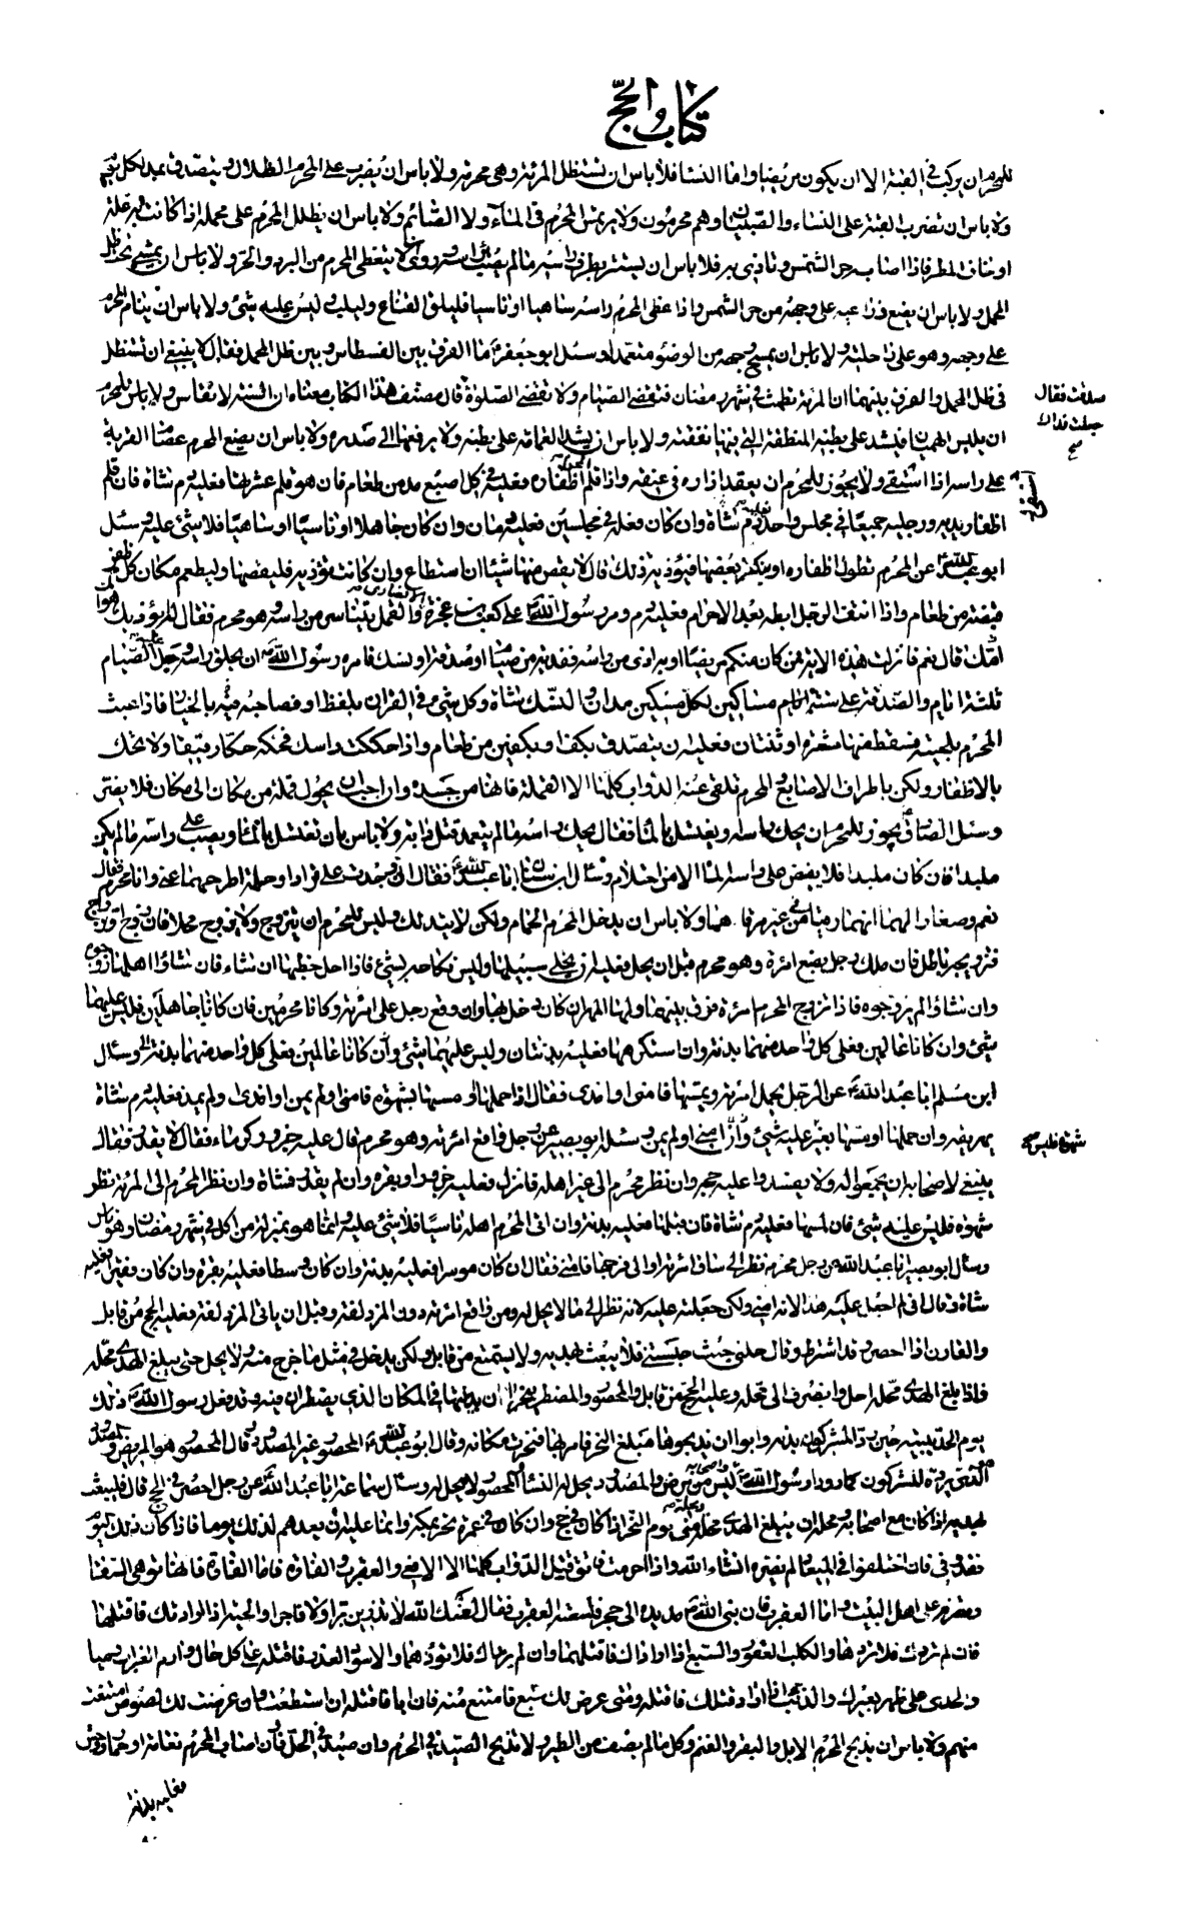 كتاب الحج
للمحرم ان يركب في القبة الا ان يكون مريضا واما النساء فلا باس ان تستظل المرئة وهي محرمة ولا باس ان يضرب على المحرم الظلال ويتصدق بمد لكل يوم
ولا باس ان تضرب القبة على النساء والصبيان وهم محرمون ولا يرتمس المحرم في الماء ولا الصائم ولا باس ان يظلل المحرم على محمله اذا كانت به علة
او خاف المطر فاذا اصابه حر الشمس وتاذى به فلا باس ان يستتر بطرف ثوبه ما لم يصب راسه وروى لا يتغطى المحرم من البرد والحر ولا باس ان يمشي تحت ظل
المحمل ولا باس ان يضع ذراعيه على وجهه من حر الشمس واذا غطى المحرم راسه ساهيا او ناسيا فليلق القناع وليلب ليس عليه شئ ولا باس ان ينام المحرم
على وجهه وهو على راحلته ولا باس ان يمسح وجهه من الوضوء متعمدا وسئل ابو جعفر ما الفرق بين الفسطاس وبين ظل المحمل فقال لا ينبغي ان تستظل
في ظل المحمل والفرق بينهما ان المرئة تطمث في شهر رمضان فتقضي الصيام ولا تقضي الصلوة قال مصنف هذا الكتاب معناه ان السنة لا تقاس ولا باس للمحرم
صدقت فقال
جعلت فداك
صح
ان يلبس الهميان فيشد على بطنه المنطقة التي فيها نفقته ولا باس ان يشد العمامة على بطنه ولا يرفعها الى صدره ولا باس ان يضع المحرم عصام القربة
على راسه اذا استقى ولا يجوز للمحرم ان يعقد ازاره في عنقه واذا قلم المحرم اظفاره فعليه في كل اصبع مد من طعام فان هو قلم عشرها فعليه دم شاة فان قلم
اظفار يديه ورجليه جميعا في مجلس واحد فعليه دم شاة وان كان فعله في مجلسين فعليه دمان وان كان جاهلا او ناسيا او ساهيا فلا شئ عليه وسئل
ابو عبد الله عن المحرم تطول اظفاره او ينكسر بعضها فيؤذيه ذلك قال لا يقص منها شيئا ان استطاع وان كانت تؤذيه فليقصها وليطعم مكان كل ظفر
قبضة من طعام واذا انتف الرجل ابطه بعد الاحرام فعليه دم ومر رسول الله على كعب بن عجزة والقمل يتناثر من راسه وهو محرم فقال له اتؤذيك هوا
امك قال نعم فانزلت هذه الاية فمن كان منكم مريضا او به اذى من راسه ففدية من صيام او صدقة او نسك فامره رسول الله ان يحلق راسه وجعل عليه الصيام
ثلثة ايام والصدقة على ستة مساكين لكل مسكين مدان والنسك شاة وكل شئ في القران بلفظ او فصاحبه فيه بالخيار فاذا عبث
المحرم بلحيته فسقط منها شعرة او ثنتان فعليه ان يتصدق بكف او بكفين من طعام واذا حككت راسك فحكه حكا رفيقا ولا تحك
بالاظفار ولكن باطراف الاصابع والمحرم تلقى عنه الدواب كلها الا القملة فانها من جسده وان احب ان يحول قملة من مكان الى مكان فلا يضر
وسئل الصادق يجوز للمحرم ان يحك راسه ويغتسل بالماء فقال يحك راسه ما لم يتعمد قتل دابة ولا باس بان تغتسل بالماء ويصب على راسه ما لم يكن
ملبدا فان كان ملبدا فلا يفض على راسه الماء الا من احتلام وسئل ابن سنان ابا عبد الله فقال ان وجدت على قرادا وحلمة اطرحهما عني وانا محرم فقال
نعم وصغارا لهما انهما رقيا في غير مرقاهما ولا باس ان يدخل المحرم الحمام ولكن لا يتدلك وليس للمحرم ان يتزوج ولا يزوج محلا فان زوج او تزوج
فتزويجه باطل فان ملك رجل بضع امرة وهو محرم قبل ان يحل فعليه ان يخلى سبيلها وليس نكاحه بشئ فاذا احل خطبها ان شاء فان شاؤا اهلها زوجوه
وان شاؤا لم يزوجوه فاذا تزوج المحرم امرئة فرق بينهما ولها المهر ان كان دخل بها وان وقع رجل على امرئته وكانا محرمين فان كانا جاهلين فليس عليهما
شئ وان كانا عالمين فعلى كل واحد منهما بدنة وان استكرهها فعليه بدنتان وليس عليها شئ وان كانا عالمين فعلى كل واحد منهما بدنة وسئل
ابن مسلم ابا عبد الله عن الرجل يحمل امرئته ويمسها فامنى او امذى فقال اذا حملها او مسها بشهوة فامنى اولم يمن او امذى او لم يمذ فعليه دم شاة
يهريقه وان حملها او مسها بغير شهوة فليس عليه شئ وان امنى او لم يمن وسئله ابو بصير عن رجل واقع امرئته وهو محرم قال عليه جزور كوماء فقال لا يقدر فقال
ينبغي لاصحابه ان يجمعوا له ولا يفسدوا عليه حجه وان نظر محرم الى غير اهله فانزل فعليه جزور او بقرة وان لم يقدر فشاة وان نظر المحرم الى المرئة نظر
شهوة فليس عليه شئ فان لمسها فعليه دم شاة فان قبلها فعليه بدنة وان اتى المحرم اهله ناسيا فلا شئ عليه انما هو بمنزلة من اكل في شهر رمضان وهو ناس
وسال ابو بصير ابا عبد الله عن رجل محرم نظر الى ساق امرئة او الى فرجها فامنى فقال ان كان موسرا فعليه بدنة وان كان وسطا فعليه بقرة وان كان فقيرا فعليه
شاة وقال انى لم اجعل عليه هذا لانه امنى ولكن جعلته عليه لانه نظر الى ما لا يحل له ومن واقع امرئته دون المزدلفة وقبل ان ياتى المزدلفة فعليه الحج من قابل
والقارن اذا احصر وقد اشترط وقال حلني حيث حبستني فلا يبعث بهديه ولا يستمتع من قابل ولكن يدخل في مثل ما خرج منه ولا يحل حتى يبلغ الهدى محله
فاذا بلغ الهدى محله احل وانصرف الى منزله وعليه الحج من قابل والمحصور والمضطر ينحران بدنتهما في المكان الذي يضطران فيه وقد فعل رسول الله ذلك
يوم الحديبية حين رد المشركون بدنه وابوا ان يدعوها مبلغ النحر فامر بها فنحرت مكانه وقال ابو عبد الله المحصور غير المصدود قال المحصور هو المريض والمصدود
الذي يرده المشركون كما ردوا رسول الله واصحابه ليس من مرض والمصدود يحل له النساء والمحصور لا يحل له وسئل سماعة ابا عبد الله عن رجل احصر في الحج قال فليبعث
بهديه اذا كان مع اصحابه ومحله ان يبلغ الهدى محله ومحله منى يوم النحر اذا كان في حج وان كان في عمرة نحر بمكة وانما عليه ان يعدهم لذلك يوما فاذا كان ذلك اليوم
فقد وفى فان اختلفوا في الميعاد لم يضره انشاء الله واذا احرمت فاتق قتل الدواب كلها الا الافعى والعقرب والفارة فاما الفارة فانها توهى السقا
وتضرم على اهل البيت واما العقرب فان نبي الله مد يده الى حجر فلسعته العقرب فقال لعنك الله لا تذرين برا ولا فاجرا والحية اذا ارادتك فاقتلها
فان لم تردك فلا تردها والكلب العقور والسبع اذا ارادك فاقتلهما وان لم يريداك فلا تؤذهما والاسود الغدر فاقتله على كل حال وارم الغراب رميا
والحدى على ظهر بعيرك والذئب اذا اراد قتلك فاقتله ومتى عرض لك سبع فامتنع منه فان ابا فاقتله ان استطعت وان عرضت لك لصوص امتنعت
منهم ولا باس ان يذبح المحرم الابل والبقر والغنم وكل ما لم يصف من الطير ولا تذبح الصيد في الحرم وان صيد في الحل فان اصاب المحرم نعامة او حمار وحش
فعليه بدنة